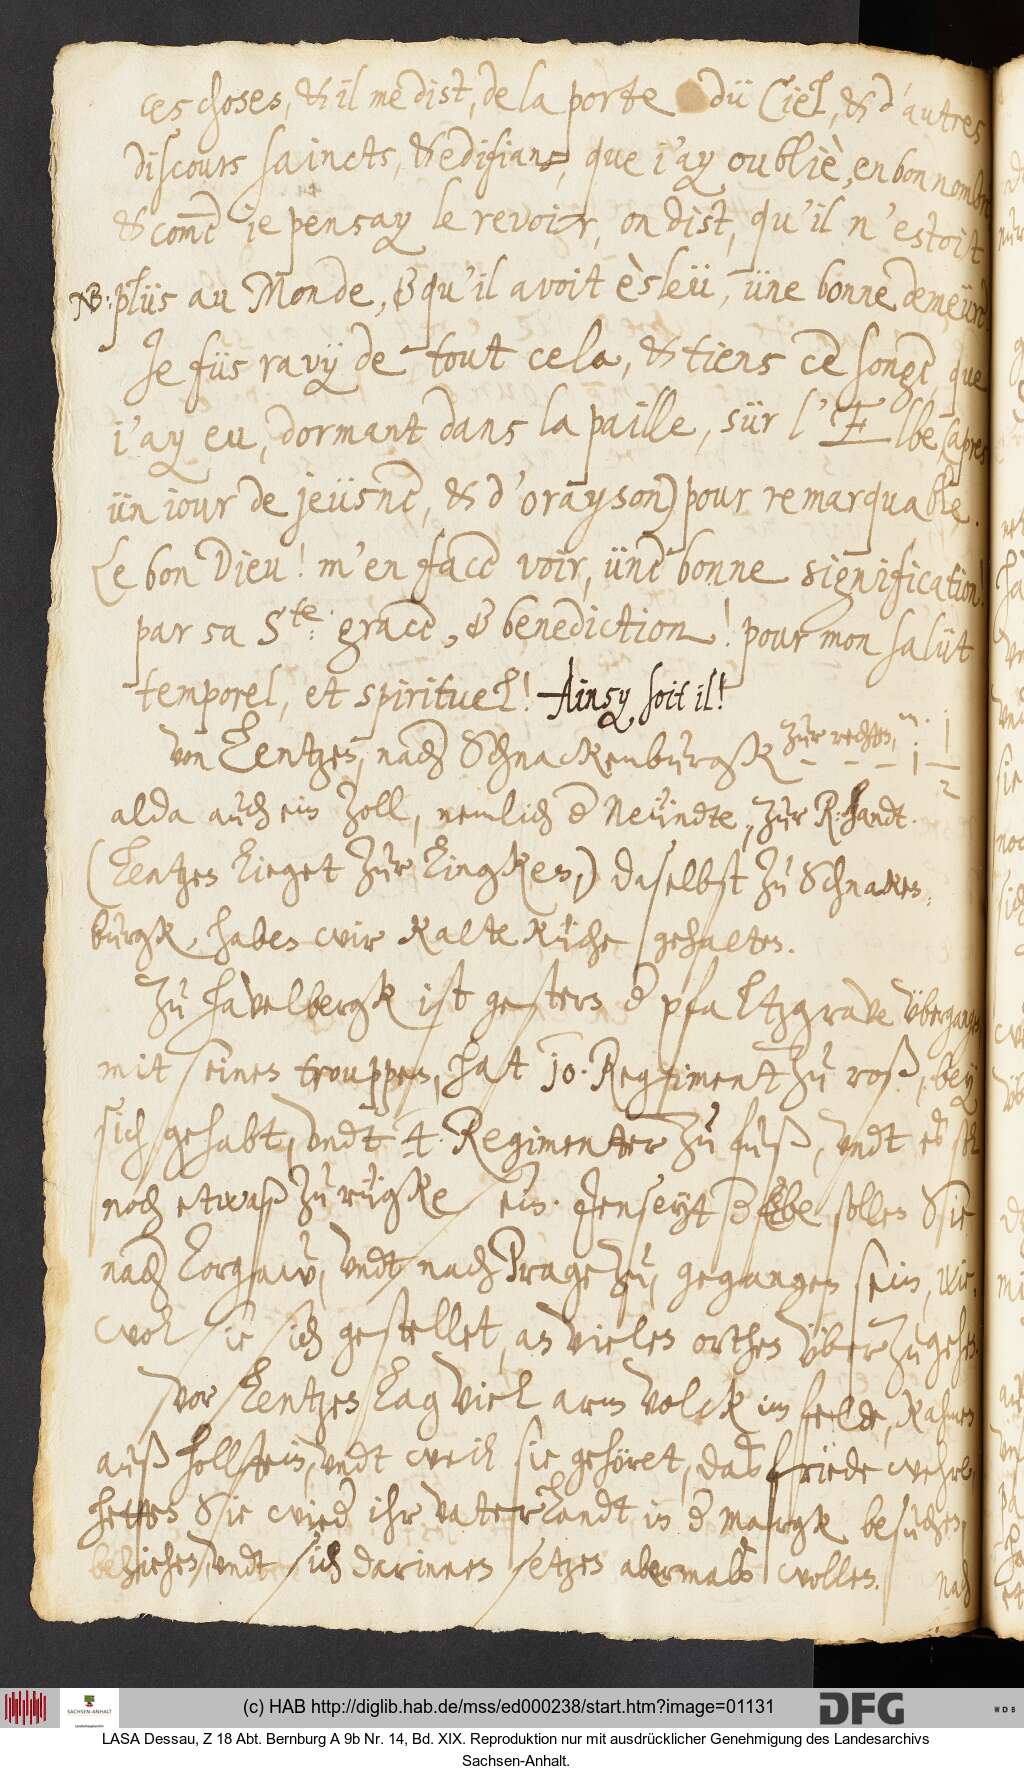 ces choses, & il me dist, de la porte dü Ciel, & d'autres
discours saincts, & edifians, que i'ay oubliè, en bon nombre
& comē ie pensay le revoir, on dist, qu'il n'estoit
NB: plüs au Monde, & qu'il avoit èsleü, üne bonne demeüre
Je füs ravÿ de tout cela, & tiens ce songe que
i'ay eu, dormant dans la paille, sür l'Elbe, (apres
ün iour de jeüsne, & d'orayson) pour remarquable.
Le bon Dieu! m'en face voir, üne bonne signification!
par sa Ste: grace, & benediction! pour mon salüt
temporel, et spirituel! Ainsy soit il!
von Lentzen, nach Schnackenburgk zur rechten, m. 1 1/2
alda auch ein Zoll, nemlich d Neündte, zur R. handt.
(Lentzen lieget zur Lingken,) daselbst zu Schnaken-
burgk, haben wir kalte küche gehalten.
Zu Havelbergk ist gestern d Pfaltzgrave übergangen
mit seinen trouppen, hat 10. Regiment zu roß, bey
sich gehabt, vndt 4. Regimenter zu fuß, vndt es
noch etwaß zu rügke sein. Jenseyt d Elbe sollen Sie
nach Torgaw, vndt nach Prage zu, gegangen sein, wie-
wol sie sich gestellet, an vielen orthen über zugehen.
Vor Lentzen lag viel arm volck im felde, kahmen
auß Hollstein, vndt weil sie gehöret, das friede wehre
hetten Sie wied ihr vaterlandt in d Margk besuchen,
beziehen, vndt sich darinnen setzen abermals wollen.
nach
(c) HAB http://diglib.hab.de/mss/ed000238/start.htm?image=01131
SACHSEN-ANHALT
DFG
WDB
LASA Dessau, Z 18 Abt. Bernburg A 9b Nr. 14, Bd. XIX. Reproduktion nur mit ausdrücklicher Genehmigung des Landesarchivs
Sachsen-Anhalt.